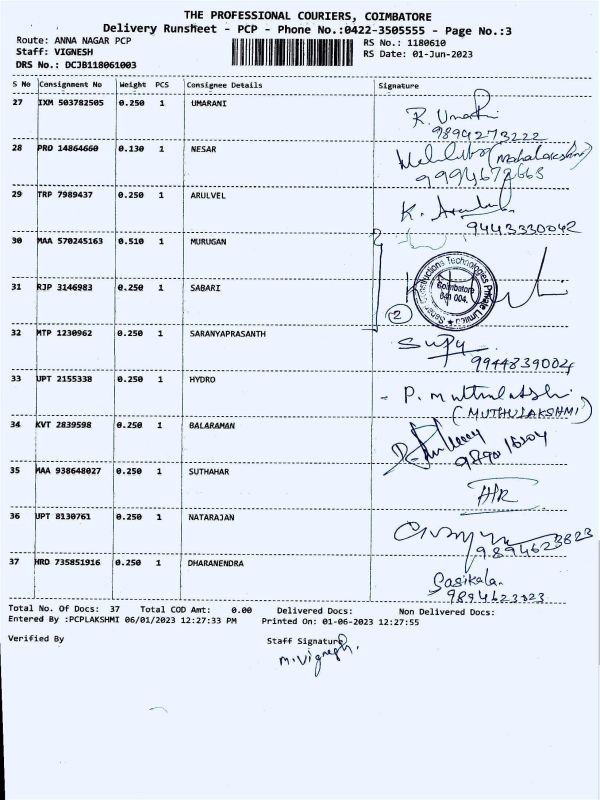 THE PROFESSIONAL COURIERS, COIMBATORE
Delivery Runsheet - PCP - Phone No.:0422-3505555 - Page No.:3
Route: ANNA NAGAR PCP RS No.: 1180610
Staff: VIGNESH RS Date: 01-Jun-2023
DRS No.: DCJB118061003
S No Consignment No Weight PCS Consignee Details Signature
27 IXM 503782505 0.250 1 UMARANI
9894273222
28 PRO 14864660 0.130 1 NESAR
(Mahalakshmi)
29 TRP 7989437 0.250 1 ARULVEL
K.
9443330042
30 MAA 570245163 0.510 1 MURUGAN
31 RJP 3146983 0.250 1 SABARI
Coimbatore
641 004.
2
32 MTP 1230962 0.250 1 SARANYAPRASANTH
9944839004
33 UPT 2155338 0.250 1 HYDRO
P. Muthulakshmi
(MUTHULAKSHMI)
34 KVT 2839598 0.250 1 BALARAMAN
35 MAA 938648027 0.250 1 SUTHAHAR
36 UPT 8130761 0.250 1 NATARAJAN
9894623823
37 HRD 735851916 0.250 1 DHARANENDRA
Sasikala
Total No. Of Docs: 37 Total COD Amt: 0.00 Delivered Docs: Non Delivered Docs:
Entered By :PCPLAKSHMI 06/01/2023 12:27:33 PM Printed On: 01-06-2023 12:27:55
Verified By Staff Signature
M. Vignesh.